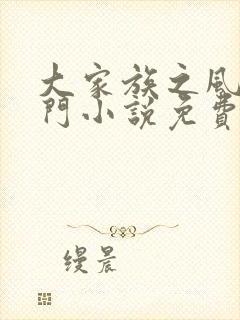 大家族之風
門小說免費
缦晨